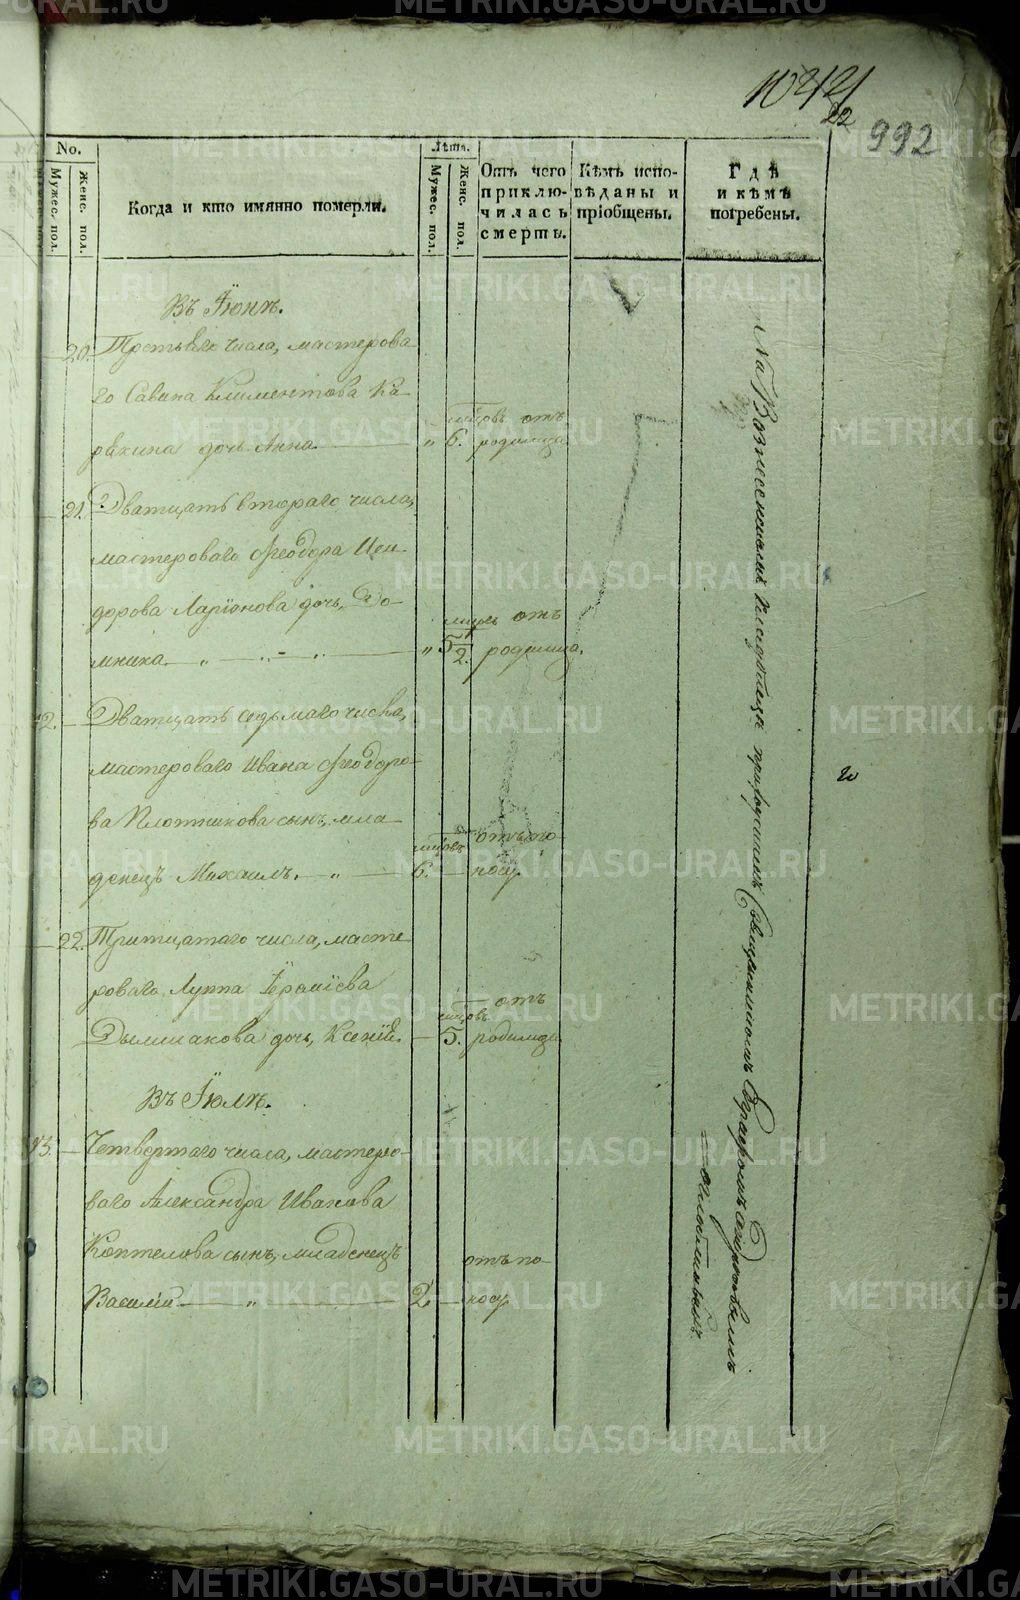 22
992
No.
Мужес. пол.
Женс. пол.
Когда и кто имянно померли.
Лѣта.
Мужес. пол.
Женс. пол.
Отъ чего приклю-
чилась
смерть.
Кѣмъ испо-
вѣданы и
прiобщены.
Гдѣ
и кѣмъ
погребены.
Въ Iюнѣ.
20. Третьяго числа, мастерова
го Савина Климентова Ка-
рякина дочь Анна „ 6. мцовъ отъ
родимца
21. Дватцать втораго числа,
мастероваго Ѳеодора Иси-
дорова Ларiонова дочь, До-
мника „ 5 1/2. мцовъ отъ
родимца.
12. Дватцать седьмаго числа,
мастероваго Ивана Ѳеодоро-
ва Плотникова сынъ, мла-
денецъ Михаилъ. 6. мцовъ отъ по-
носу
22. Тритцатаго числа, масте
роваго Луппа
дочь, Ксенiя. 5. мцовъ отъ
родимца
Въ Iюлѣ.
13. Четвертаго числа, мастеро-
ваго Александра Иванова
Коптелова сынъ, младенецъ
Василiй 2. отъ по-
носу
На Вознесенскомъ кладбищѣ приходскимъ Священникомъ
METRIKI.GASO-URAL.RU